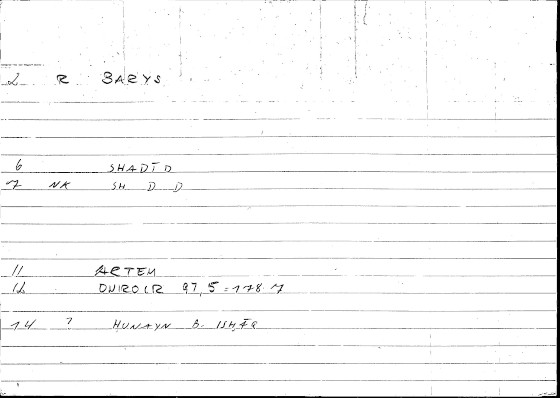 2 R BARYS
6 SHADĪD
7 NK SH D D
11 ARTEM
12 ONIROCR 97,5 = 178 7
14 ? HUNAYN B. ISHĀQ